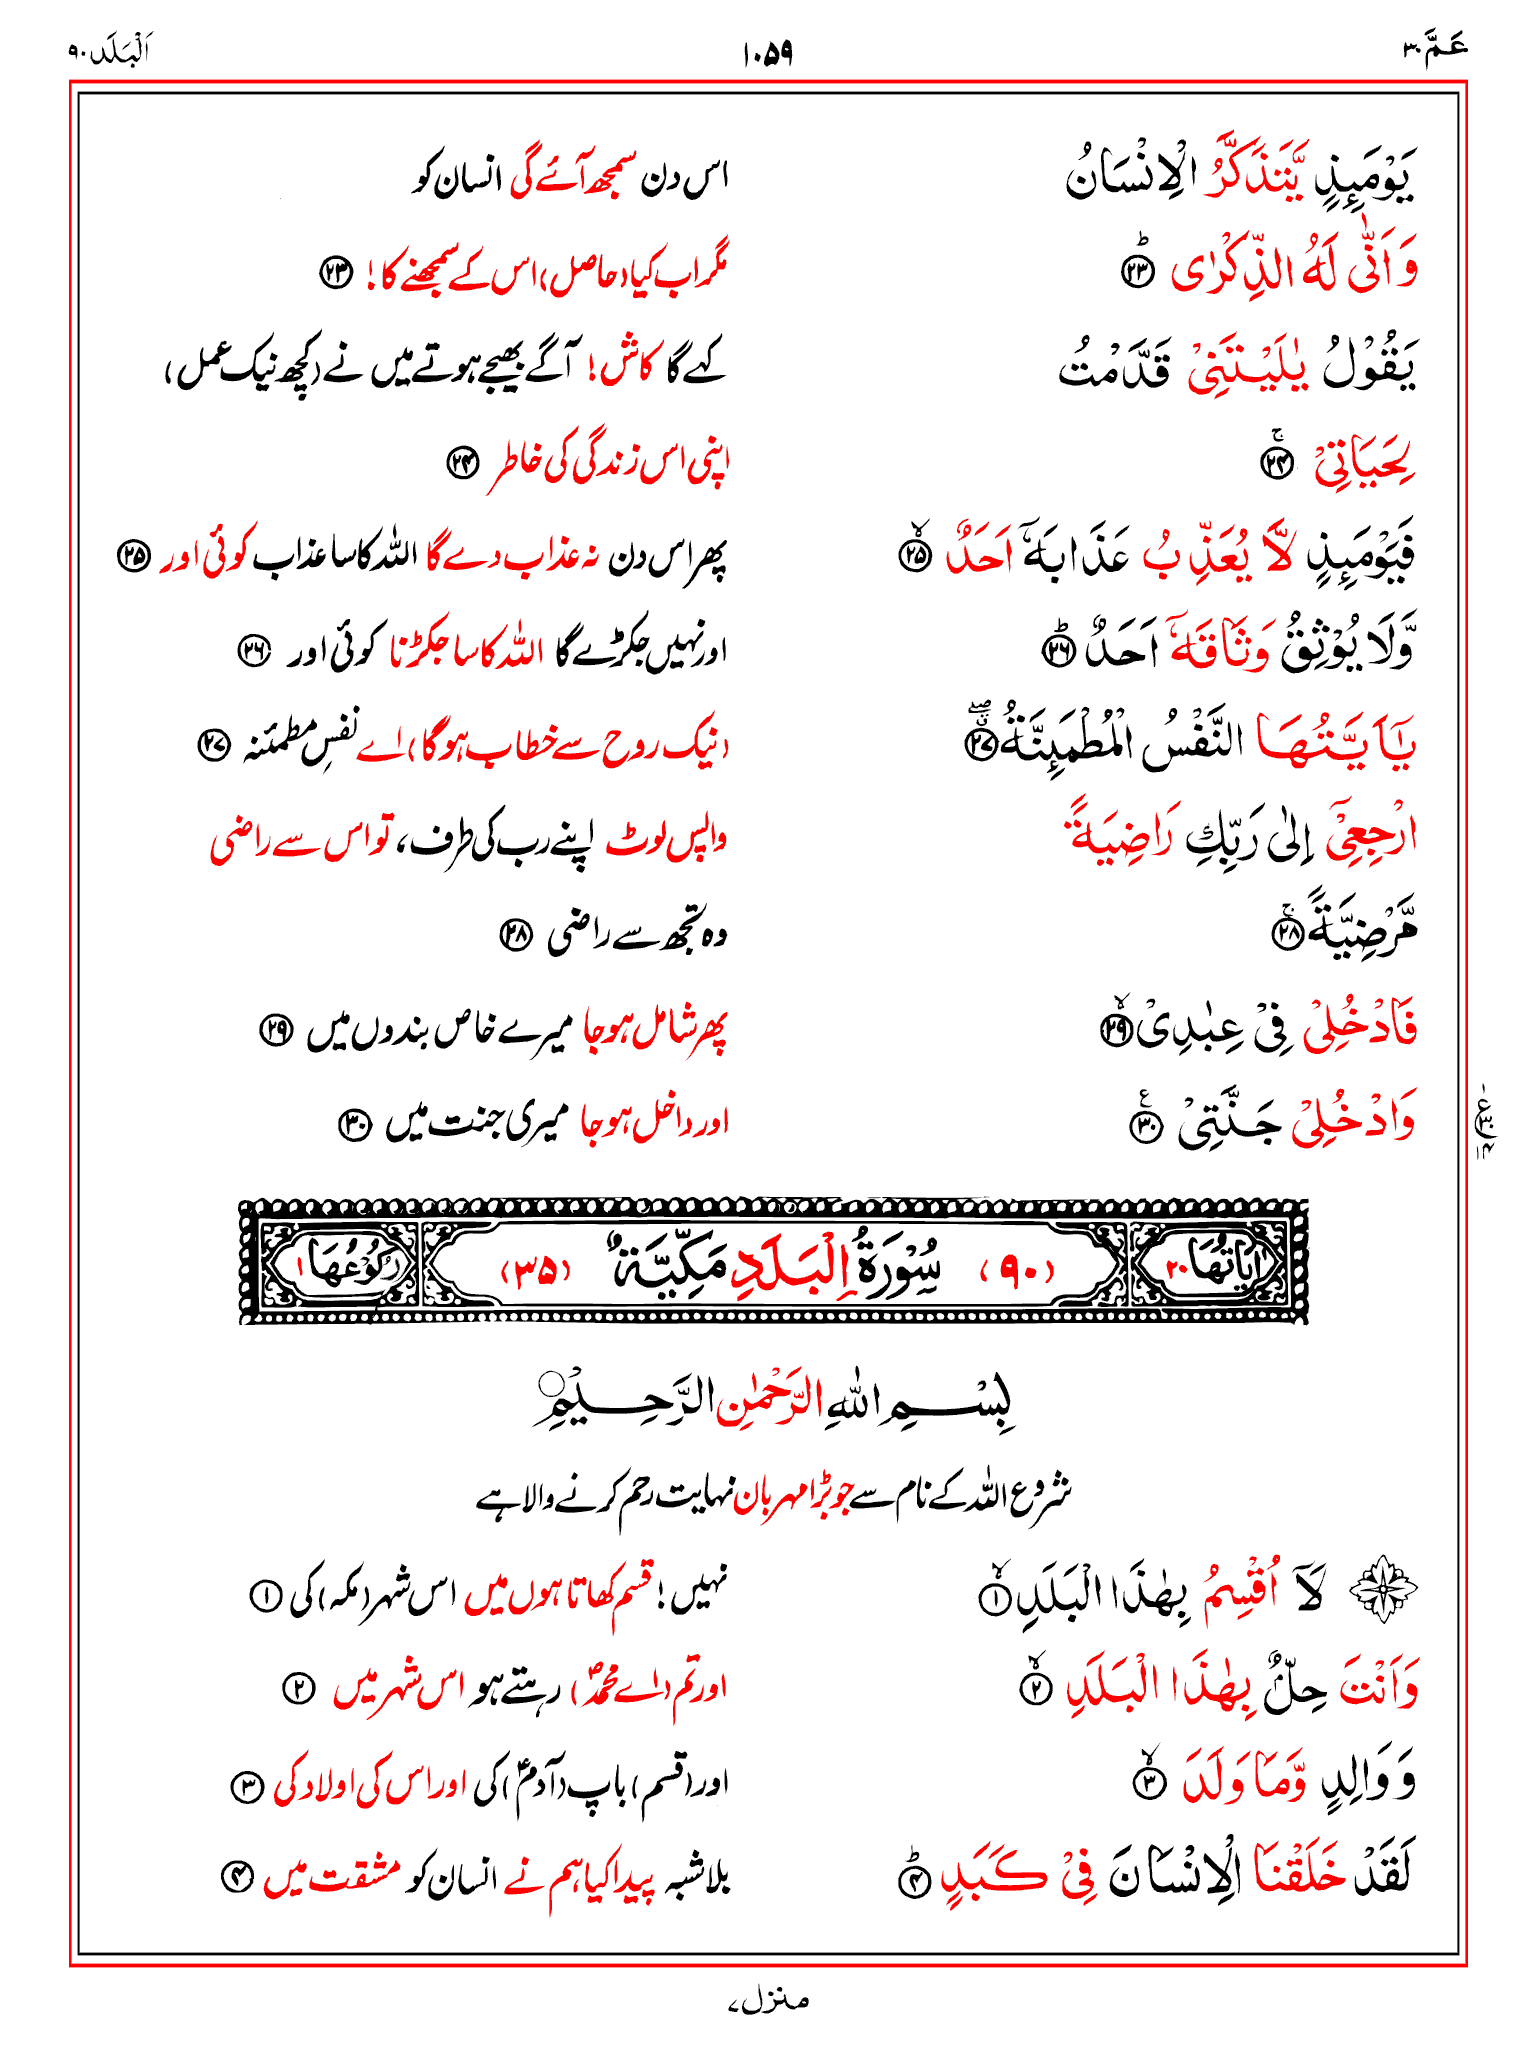 عَمَّ ٣٠
١٠٥٩
اَلْبَلَد ٩٠
يَوْمَىِٕذٍ يَّتَذَكَّرُ الْاِنْسَانُ
اس دن سمجھ آئے گی انسان کو
وَ اَنّٰى لَهُ الذِّكْرٰى ؕ ﴿۲۳﴾
مگر اب کیا (حاصل) اس کے سمجھنے کا! ﴿۲۳﴾
يَقُوْلُ يٰلَيْتَنِيْ قَدَّمْتُ
کہے گا کاش! آگے بھیجے ہوتے میں نے (کچھ نیک عمل)
لِحَيَاتِيْ ۚ ﴿۲۴﴾
اپنی اس زندگی کی خاطر ﴿۲۴﴾
فَيَوْمَىِٕذٍ لَّا يُعَذِّبُ عَذَابَهٗۤ اَحَدٌ ۙ ﴿۲۵﴾
پھر اس دن نہ عذاب دے گا اللہ کا سا عذاب کوئی اور ﴿۲۵﴾
وَّلَا يُوْثِقُ وَثَاقَهٗۤ اَحَدٌ ؕ ﴿۲۶﴾
اور نہیں جکڑے گا اللہ کا سا جکڑنا کوئی اور ﴿۲۶﴾
يٰۤاَيَّتُهَا النَّفْسُ الْمُطْمَىِٕنَّةُ ۖ ﴿۲۷﴾
(نیک روح سے خطاب ہوگا) اے نفسِ مطمئنہ ﴿۲۷﴾
ارْجِعِيْۤ اِلٰى رَبِّكِ رَاضِيَةً
واپس لوٹ اپنے رب کی طرف، تو اس سے راضی
مَّرْضِيَّةً ۚ ﴿۲۸﴾
وہ تجھ سے راضی ﴿۲۸﴾
فَادْخُلِيْ فِيْ عِبٰدِيْ ۙ ﴿۲۹﴾
پھر شامل ہو جا میرے خاص بندوں میں ﴿۲۹﴾
وَادْخُلِيْ جَنَّتِيْ ﴿۳۰﴾
اور داخل ہو جا میری جنت میں ﴿۳۰﴾
اٰيَاتُهَا ٢٠ (٩٠) سُوْرَةُ الْبَلَدِ مَكِّيَّةٌ (٣٥) رُكُوْعُهَا ١
بِسْمِ اللّٰهِ الرَّحْمٰنِ الرَّحِيْمِ
شروع اللہ کے نام سے جو بڑا مہربان نہایت رحم کرنے والا ہے
لَاۤ اُقْسِمُ بِهٰذَا الْبَلَدِ ۙ ﴿۱﴾
نہیں! قسم کھاتا ہوں میں اس شہر (مکہ) کی ﴿۱﴾
وَاَنْتَ حِلٌّۢ بِهٰذَا الْبَلَدِ ۙ ﴿۲﴾
اور تم (اے محمدؐ) رہتے ہو اس شہر میں ﴿۲﴾
وَ وَالِدٍ وَّمَا وَلَدَ ۙ ﴿۳﴾
اور (قسم) باپ (آدمؑ) کی اور اس کی اولاد کی ﴿۳﴾
لَقَدْ خَلَقْنَا الْاِنْسَانَ فِيْ كَبَدٍ ؕ ﴿۴﴾
بلاشبہ پیدا کیا ہم نے انسان کو مشقت میں ﴿۴﴾
منزل ٧